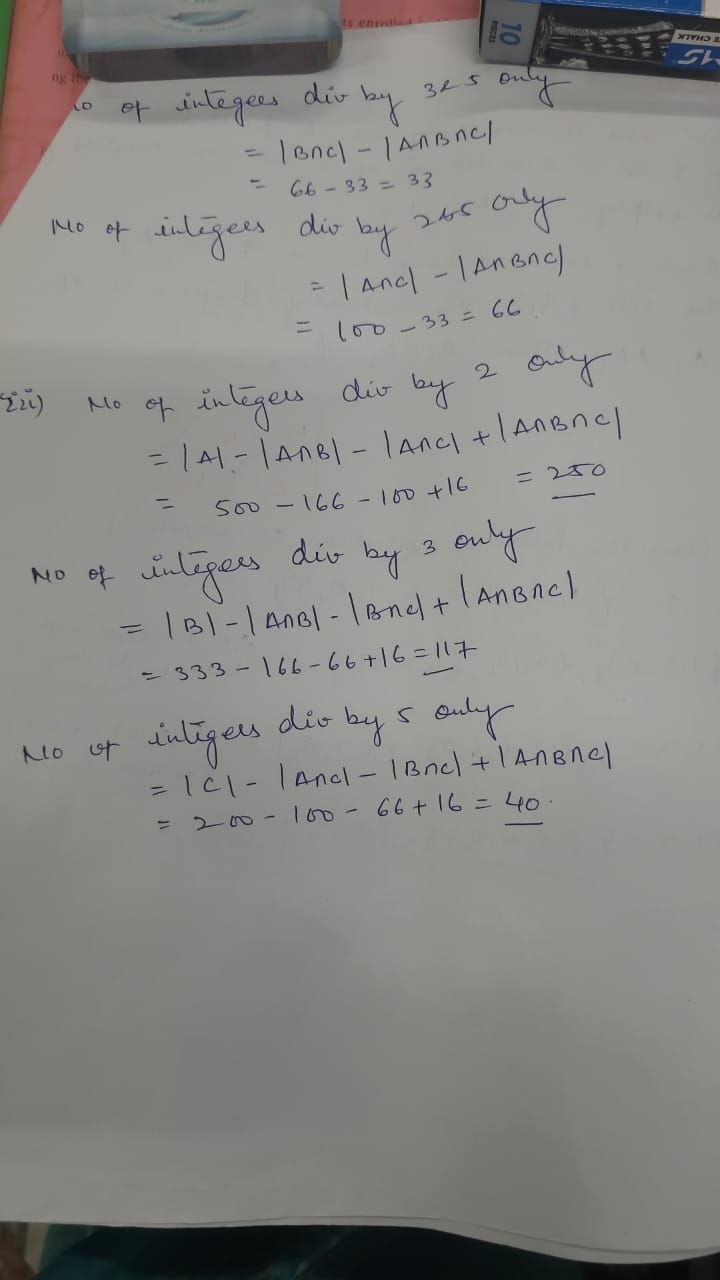 ts enrolled
ng the
10 PIECES
CHALK
MS
o of integers div by 3 & 5 only
= |B∩C| - |A∩B∩C|
= 66 - 33 = 33
No of integers div by 2 & 5 only
= |A∩C| - |A∩B∩C|
= 100 - 33 = 66.
iii) No of integers div by 2 only
= |A| - |A∩B| - |A∩C| + |A∩B∩C|
= 500 - 166 - 100 + 16 = 250
No of integers div by 3 only
= |B| - |A∩B| - |B∩C| + |A∩B∩C|
= 333 - 166 - 66 + 16 = 117
No of integers div by 5 only
= |C| - |A∩C| - |B∩C| + |A∩B∩C|
= 200 - 100 - 66 + 16 = 40.